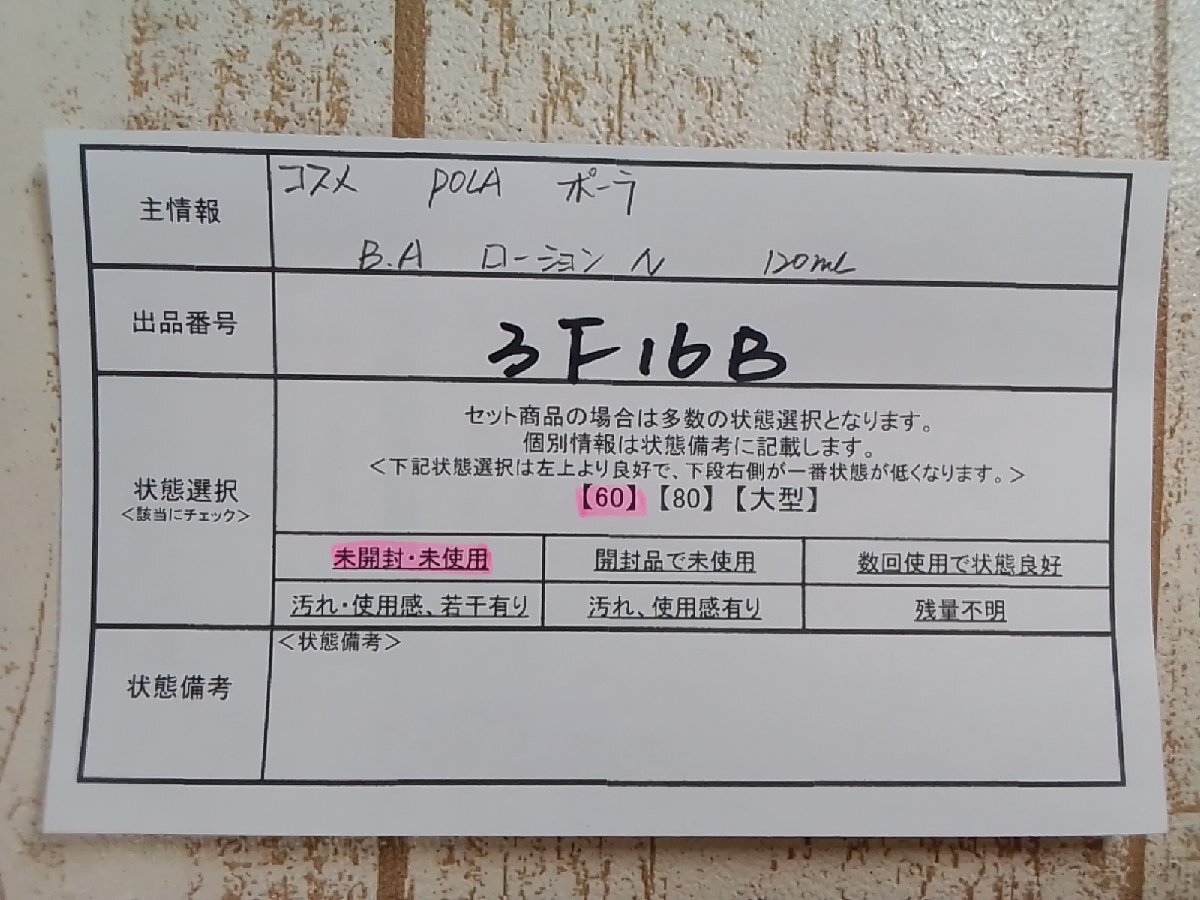 主情報
コスメ POLA ポーラ
B.A ローション N 120mL
出品番号
3F16B
状態選択
<該当にチェック>
セット商品の場合は多数の状態選択となります。
個別情報は状態備考に記載します。
<下記状態選択は左上より良好で、下段右側が一番状態が低くなります。>
【60】【80】【大型】
未開封・未使用 開封品で未使用 数回使用で状態良好
汚れ・使用感、若干有り 汚れ、使用感有り 残量不明
状態備考
<状態備考>